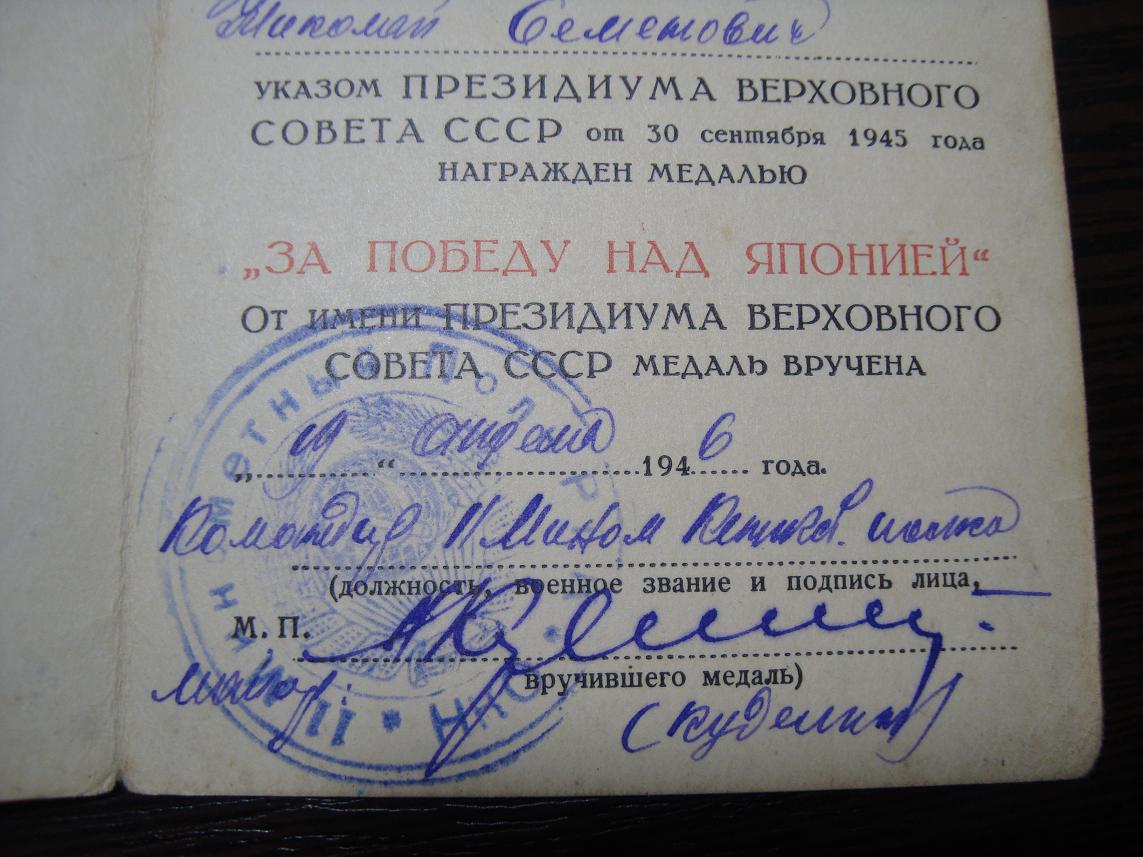 Николай Семенович
УКАЗОМ ПРЕЗИДИУМА ВЕРХОВНОГО
СОВЕТА СССР от 30 сентября 1945 года
НАГРАЖДЕН МЕДАЛЬЮ
„ЗА ПОБЕДУ НАД ЯПОНИЕЙ“
От имени ПРЕЗИДИУМА ВЕРХОВНОГО
СОВЕТА СССР МЕДАЛЬ ВРУЧЕНА
„19“ апреля 1946 года.
Командир 11 Мином полка
(должность, военное звание и подпись лица,
М. П.
вручившего медаль)
майор:
11 МИНОМЕТНЫЙ ПОЛК